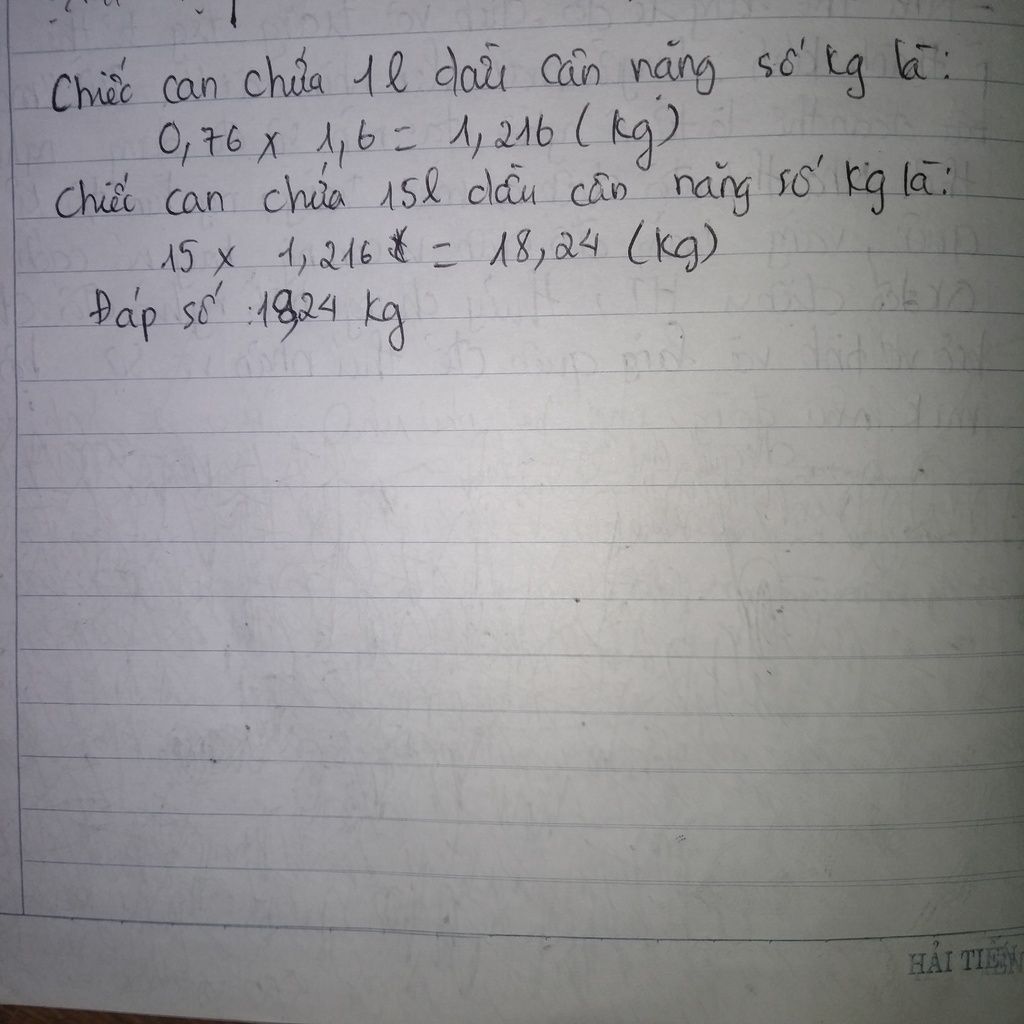 Chiếc can chứa 1l dầu cân nặng số kg là:
0,76 x 1,6 = 1,216 (kg)
Chiếc can chứa 15l dầu cân nặng số kg là:
15 x 1,216 = 18,24 (kg)
Đáp số: 18,24 kg
HẢI TIẾN